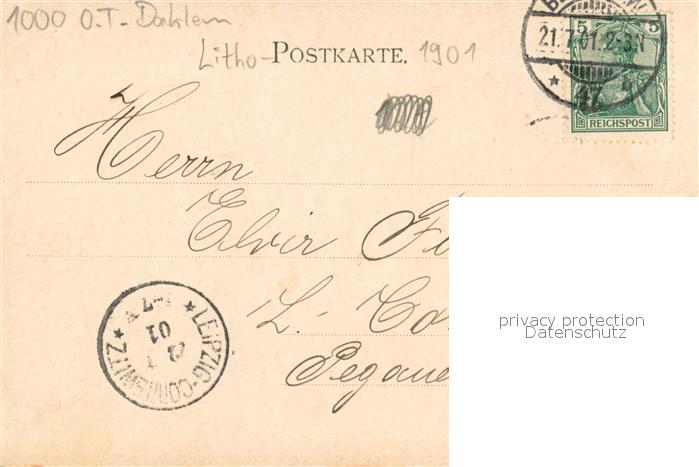 1000 O.T. Dahlem
Litho-POSTKARTE. 1901
5 5
21.7.01.2-3N
REICHSPOST
Herrn
Elvir
L.-Co
Pegaue
LEIPZIG-CONNEWITZ
01
privacy protection
Datenschutz